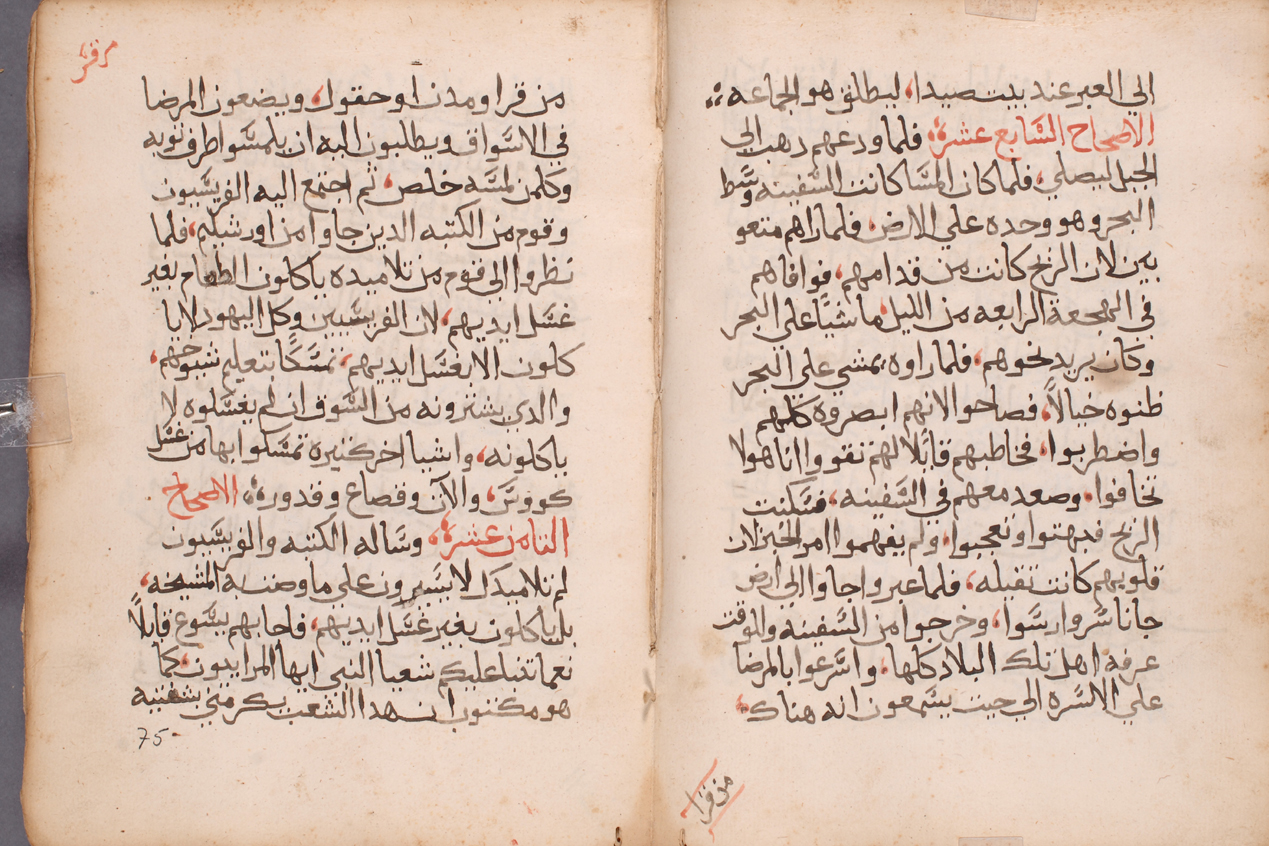 الي العبر عند بيت صيدا، ليطلق هو الجماعه
الاصحاح السابع عشر فلما ودعهم دهب الي
الجبل ليصلي، فلما كان المسا كانت السفينه وسط
البحر وهو وحده علي الارض، فلما راهم متعو
بين لان الريح كانت من قدامهم، فوافاهم
في الهجعة الرابعه من الليل ماشيًا علي البحر
وكان يريد نحوهم، فلما راوه يمشي علي البحر
ظنوه خيالاً، فصاحوا لانهم ابصروه كلهم
واضطربوا، فخاطبهم قايلًا لهم تقووا انا هو لا
تخافوا، وصعد معهم في السفينه، فسكنت
الريح فبهتوا وتعجبوا، ولم يفهموا امر الخبز لان
قلوبهم كانت ثقيله، فلما عبروا جاوا الي ارض
جاناسر وارسوا، وخرجوا من السفينه وللوقت
عرفه اهل تلك البلاد كلها، واسرعوا بالمرضا
علي الاسره الي حيت يسمعون انه هناك،
من قرا
مرقس
من قرا ومدن او حقول، ويضعون المرضا
في الاسواق ويطلبون اليه ان يلمسوا طرف توبه
وكلمن لمسه خلص، ثم اجتمع اليه الفريسيون
وقوم من الكتبه الدين جاوا من اورشليم، فلما
نظروا الي قوم من تلاميده ياكلون الطعام بغير
غسل ايديهم، لان الفريسيين وكل اليهود لا يا
كلون الا بغسل ايديهم، تمسكًا بتعليم شيوخهم،
والدي يشترونه من السوق ان لم يغسلوه لا
ياكلونه، واشيا اخر كثيره تمسكوا بها من غسل
كووس، والآن وقصاع وقدور، الاصحاح
الثامن عشر وساله الكتبه والفريسيون
لم تلاميدك لا يسيرون علي ما وضنته المشيخه،
بل ياكلون بغير غسل ايديهم، فاجابهم يسوع قايلًا
نعما تنبا عليكم شعيا النبي ايها المرايون، كما
هو مكتوب ان هدا الشعب يكرمني بشفتيه
75